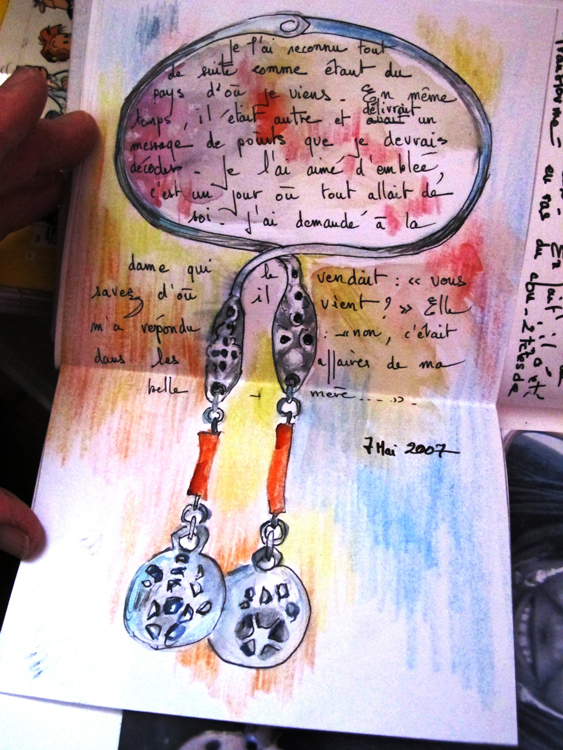 Je l'ai reconnu tout
de suite comme étant du
pays d'où je viens - En même
délivrait
temps, il était autre et avait un
message de points que je devrais
décoder - Je l'ai aimé d'emblée,
c'est un jour où tout allait de
soi - j'ai demandé à la
dame qui le vendait : « vous
savez d'où il vient ? » Elle
m'a répondu : - «non, c'était
dans les affaires de ma
belle - mère .... ».
7 Mai 2007
En fait, il a été
ras du cou - 2 têtes de